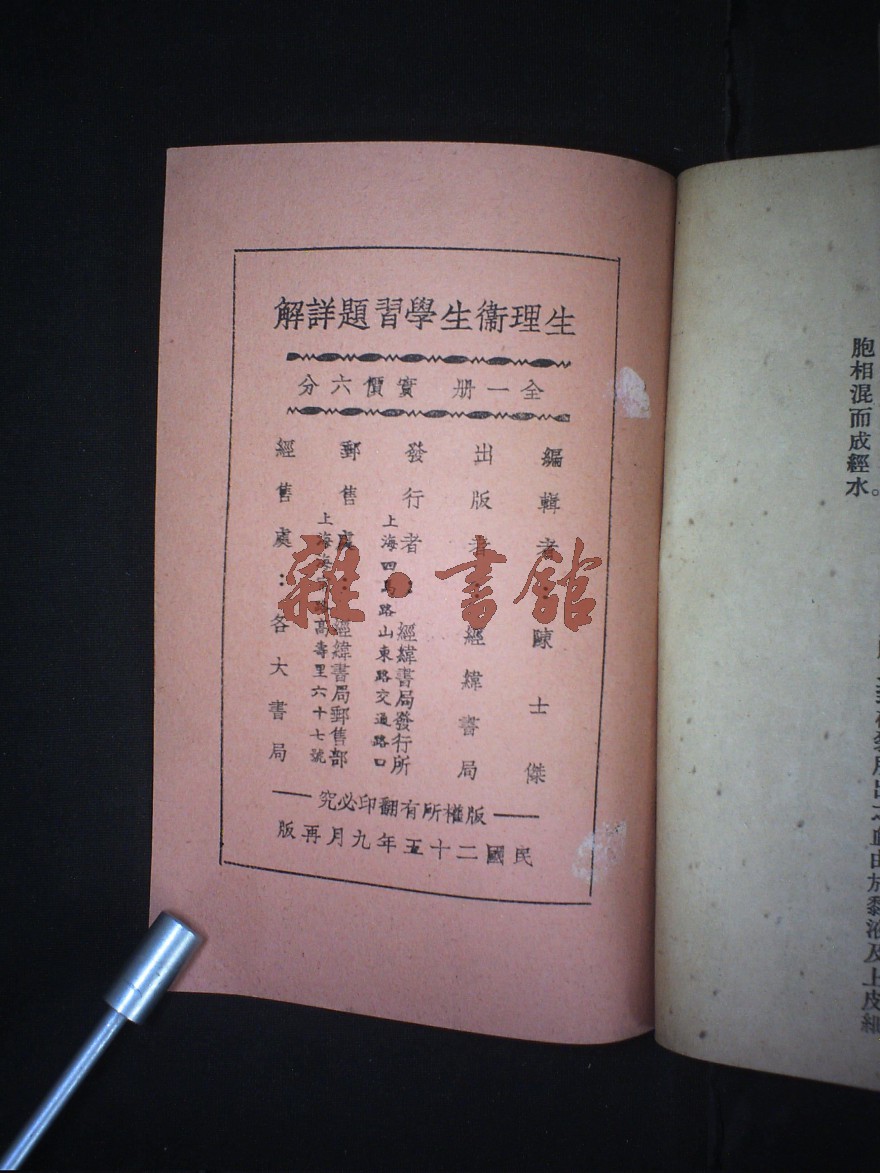 生理衞生學習題詳解
全一册 實價六分
編輯者：陳士傑
出版者：經緯書局
發行者：經緯書局發行所
上海四馬路山東路交通路口
郵售處：經緯書局郵售部
上海路高壽里六十七號
經售處：各大書局
版權所有翻印必究
民國二十五年九月再版
雜·書館
出之血由於黏液及上皮細
胞相混而成經水。